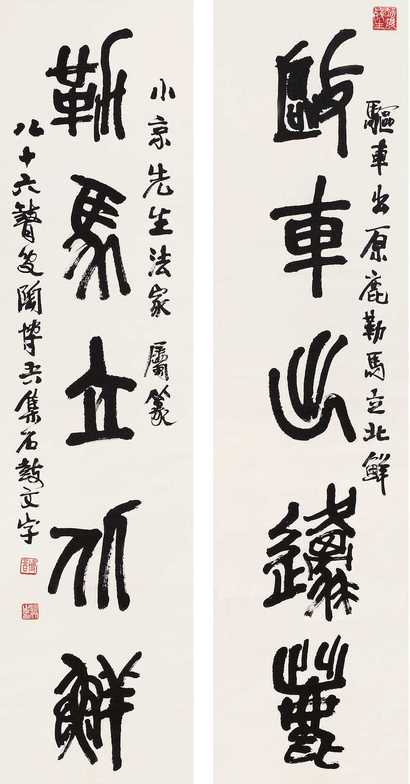 驅車出原鹿勒馬立北鮮
敺車出邍
小京先生法家 屬篆
勒馬立北鮮
八十六瞽叟陶博吾集石鼓文字